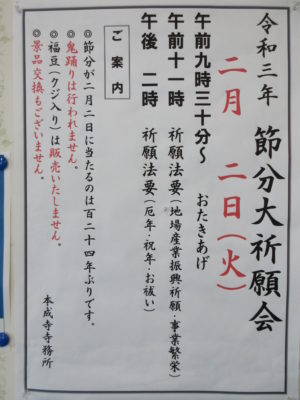 令和三年 節分大祈願会
二月 二日(火)
午前九時三十分〜 おたきあげ
午前十一時 祈願法要(地場産業振興祈願・事業繁栄)
午後 二時 祈願法要(厄年・祝年・お祓い)
ご案内
◎節分が二月二日に当たるのは百二十四年ぶりです。
◎鬼踊りは行われません。
◎福豆(クジ入り)は販売いたしません。
◎景品交換もございません。
本成寺寺務所